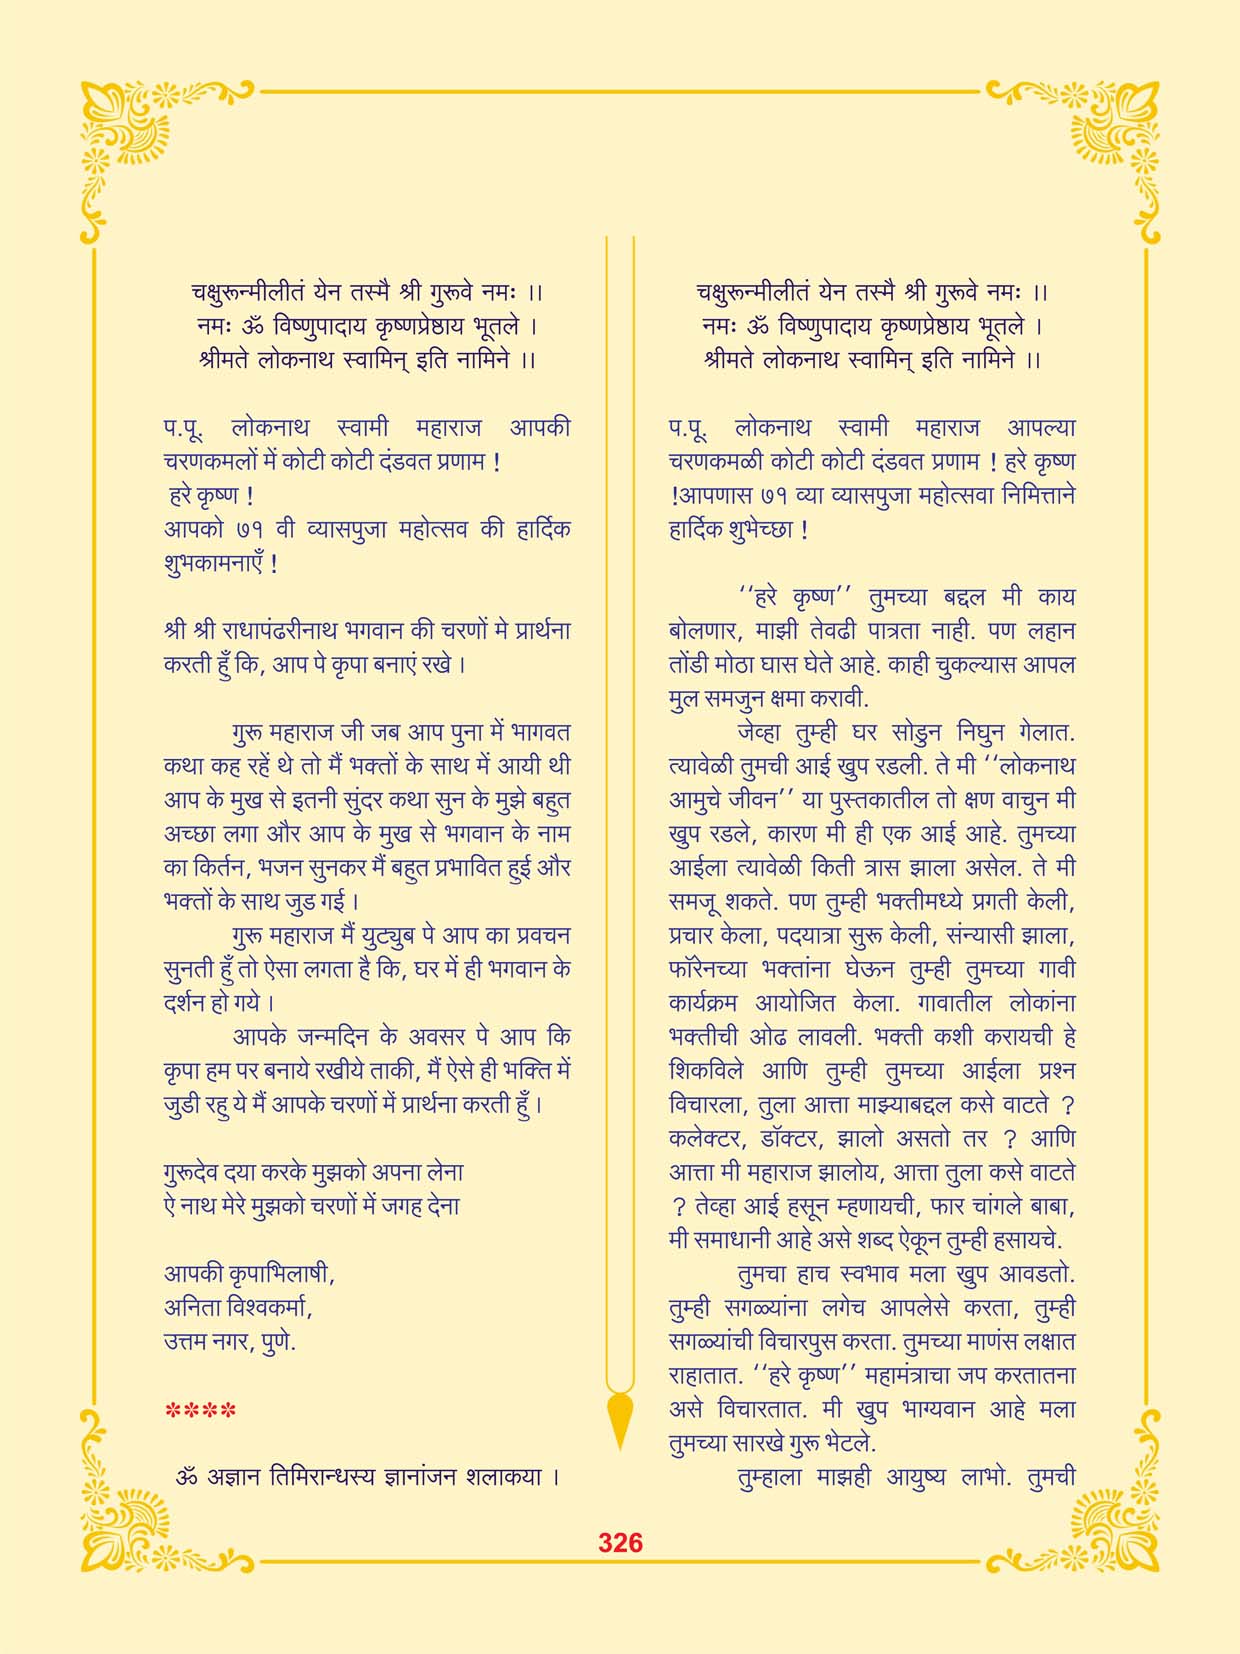 चक्षुरून्मीलीतं येन तस्मै श्री गुरूवे नमः ।।
नमः ॐ विष्णुपादाय कृष्णप्रेष्ठाय भूतले ।
श्रीमते लोकनाथ स्वामिन् इति नामिने ।।
प.पू. लोकनाथ स्वामी महाराज आपकी
चरणकमलों में कोटी कोटी दंडवत प्रणाम !
हरे कृष्ण !
आपको ७१ वी व्यासपुजा महोत्सव की हार्दिक
शुभकामनाएँ !
श्री श्री राधापंढरीनाथ भगवान की चरणों मे प्रार्थना
करती हुँ कि, आप पे कृपा बनाएं रखे ।
गुरू महाराज जी जब आप पुना में भागवत
कथा कह रहें थे तो मैं भक्तों के साथ में आयी थी
आप के मुख से इतनी सुंदर कथा सुन के मुझे बहुत
अच्छा लगा और आप के मुख से भगवान के नाम
का किर्तन, भजन सुनकर मैं बहुत प्रभावित हुई और
भक्तों के साथ जुड गई ।
गुरू महाराज मैं युट्युब पे आप का प्रवचन
सुनती हुँ तो ऐसा लगता है कि, घर में ही भगवान के
दर्शन हो गये ।
आपके जन्मदिन के अवसर पे आप कि
कृपा हम पर बनाये रखीये ताकी, मैं ऐसे ही भक्ति में
जुडी रहु ये मैं आपके चरणों में प्रार्थना करती हुँ ।
गुरूदेव दया करके मुझको अपना लेना
ऐ नाथ मेरे मुझको चरणों में जगह देना
आपकी कृपाभिलाषी,
अनिता विश्वकर्मा,
उत्तम नगर, पुणे.
****
ॐ अज्ञान तिमिरान्धस्य ज्ञानांजन शलाकया ।
चक्षुरून्मीलीतं येन तस्मै श्री गुरूवे नमः ।।
नमः ॐ विष्णुपादाय कृष्णप्रेष्ठाय भूतले ।
श्रीमते लोकनाथ स्वामिन् इति नामिने ।।
प.पू. लोकनाथ स्वामी महाराज आपल्या
चरणकमळी कोटी कोटी दंडवत प्रणाम ! हरे कृष्ण
!आपणास ७१ व्या व्यासपुजा महोत्सवा निमित्ताने
हार्दिक शुभेच्छा !
‘‘हरे कृष्ण’’ तुमच्या बद्दल मी काय
बोलणार, माझी तेवढी पात्रता नाही. पण लहान
तोंडी मोठा घास घेते आहे. काही चुकल्यास आपल
मुल समजुन क्षमा करावी.
जेव्हा तुम्ही घर सोडुन निघुन गेलात.
त्यावेळी तुमची आई खुप रडली. ते मी ‘‘लोकनाथ
आमुचे जीवन’’ या पुस्तकातील तो क्षण वाचुन मी
खुप रडले, कारण मी ही एक आई आहे. तुमच्या
आईला त्यावेळी किती त्रास झाला असेल. ते मी
समजू शकते. पण तुम्ही भक्तीमध्ये प्रगती केली,
प्रचार केला, पदयात्रा सुरू केली, संन्यासी झाला,
फॉरेनच्या भक्तांना घेऊन तुम्ही तुमच्या गावी
कार्यक्रम आयोजित केला. गावातील लोकांना
भक्तीची ओढ लावली. भक्ती कशी करायची हे
शिकविले आणि तुम्ही तुमच्या आईला प्रश्न
विचारला, तुला आत्ता माझ्याबद्दल कसे वाटते ?
कलेक्टर, डॉक्टर, झालो असतो तर ? आणि
आत्ता मी महाराज झालोय, आत्ता तुला कसे वाटते
? तेव्हा आई हसून म्हणायची, फार चांगले बाबा,
मी समाधानी आहे असे शब्द ऐकून तुम्ही हसायचे.
तुमचा हाच स्वभाव मला खुप आवडतो.
तुम्ही सगळ्यांना लगेच आपलेसे करता, तुम्ही
सगळ्यांची विचारपुस करता. तुमच्या माणंस लक्षात
राहातात. ‘‘हरे कृष्ण’’ महामंत्राचा जप करतातना
असे विचारतात. मी खुप भाग्यवान आहे मला
तुमच्या सारखे गुरू भेटले.
तुम्हाला माझही आयुष्य लाभो. तुमची
326